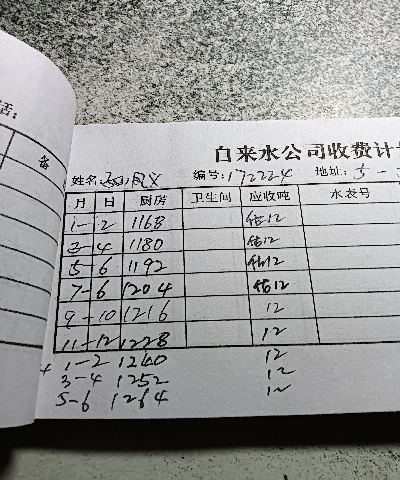 话:
备
自来水公司收费计
姓名: 编号:172224 地址: 5-
月 日 厨房 卫生间 应收吨 水表号
1-2 1168 估12
3-4 1180 估12
5-6 1192 估12
7-6 1204 估12
9-10 1216 12
11-12 1228 12
1-2 1240 12
3-4 1252 12
5-6 1264 12